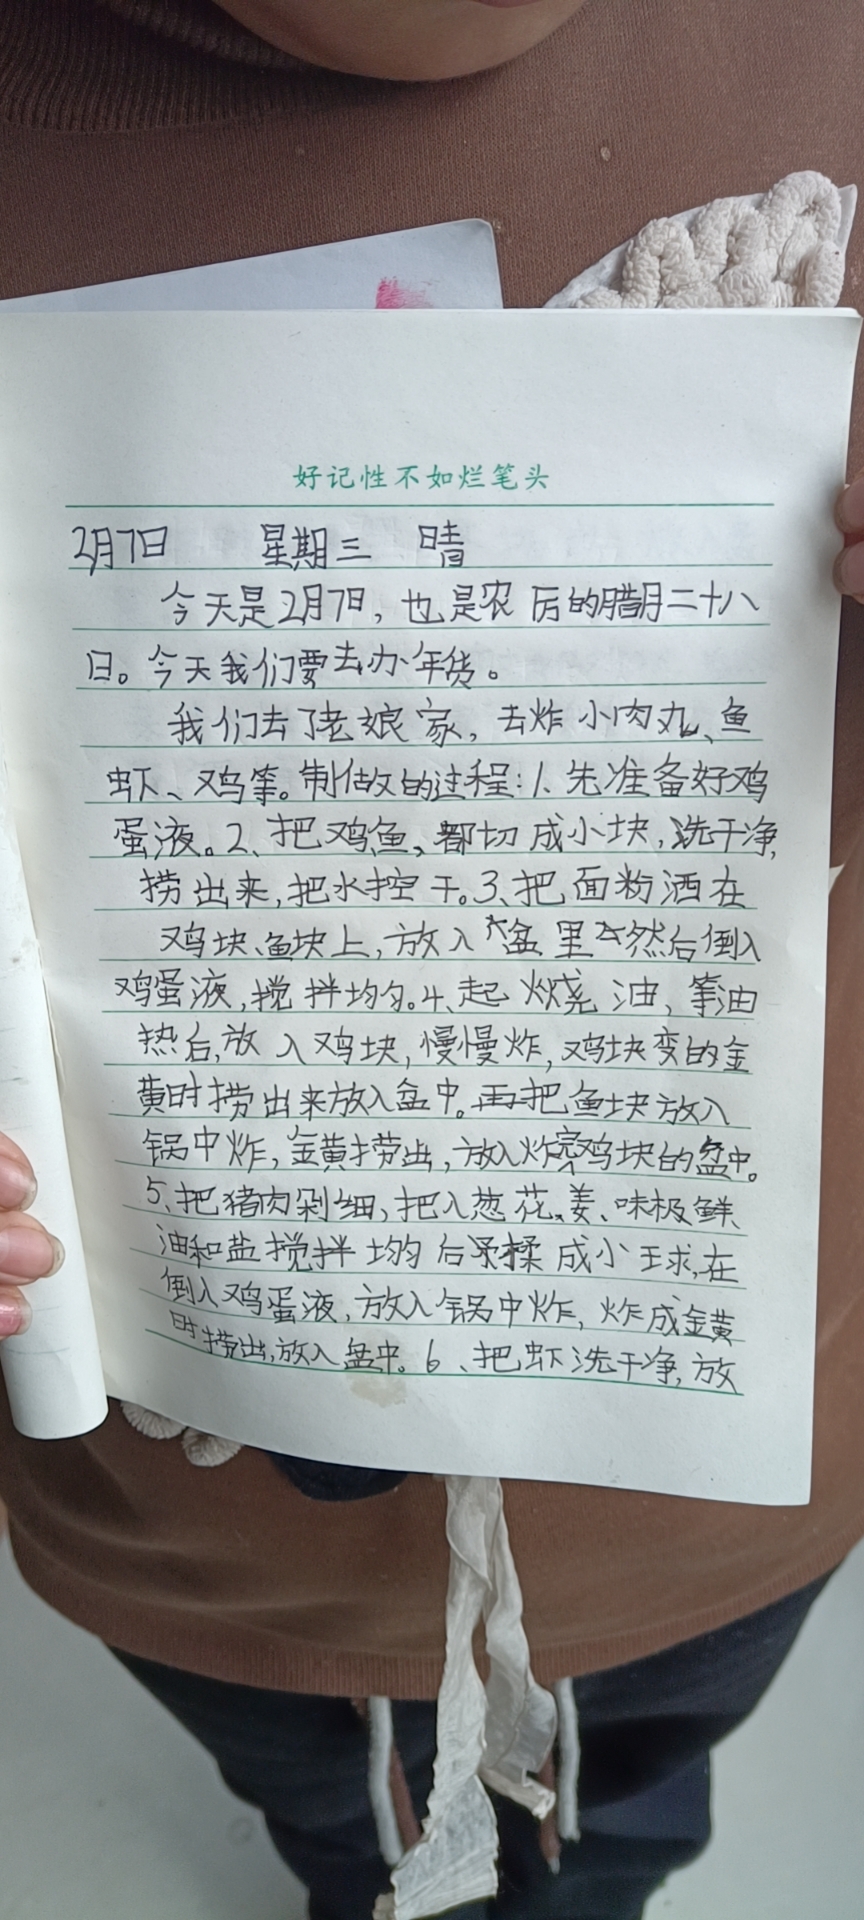 好记性不如烂笔头
2月7日 星期三 晴
今天是2月7日，也是农历的腊月二十八
日。今天我们要去办年货。
我们去了老娘家，去炸小肉丸、鱼
虾、鸡等。制做的过程：1、先准备好鸡
蛋液。2、把鸡鱼、都切成小块，洗干净，
捞出来，把水控干。3、把面粉洒在
鸡块、鱼块上，放入大盆里然后倒入
鸡蛋液，搅拌均匀。4、起烧油，等油
热后，放入鸡块，慢慢炸，鸡块变的金
黄时捞出来放入盆中。再把鱼块放入
锅中炸，金黄捞出，放入炸完鸡块的盆中。
5、把猪肉剁细，把入葱花、姜、味极鲜、
油和盐搅拌均匀后揉成小球，在
倒入鸡蛋液，放入锅中炸，炸成金黄
时捞出，放入盆中。6、把虾洗干净，放